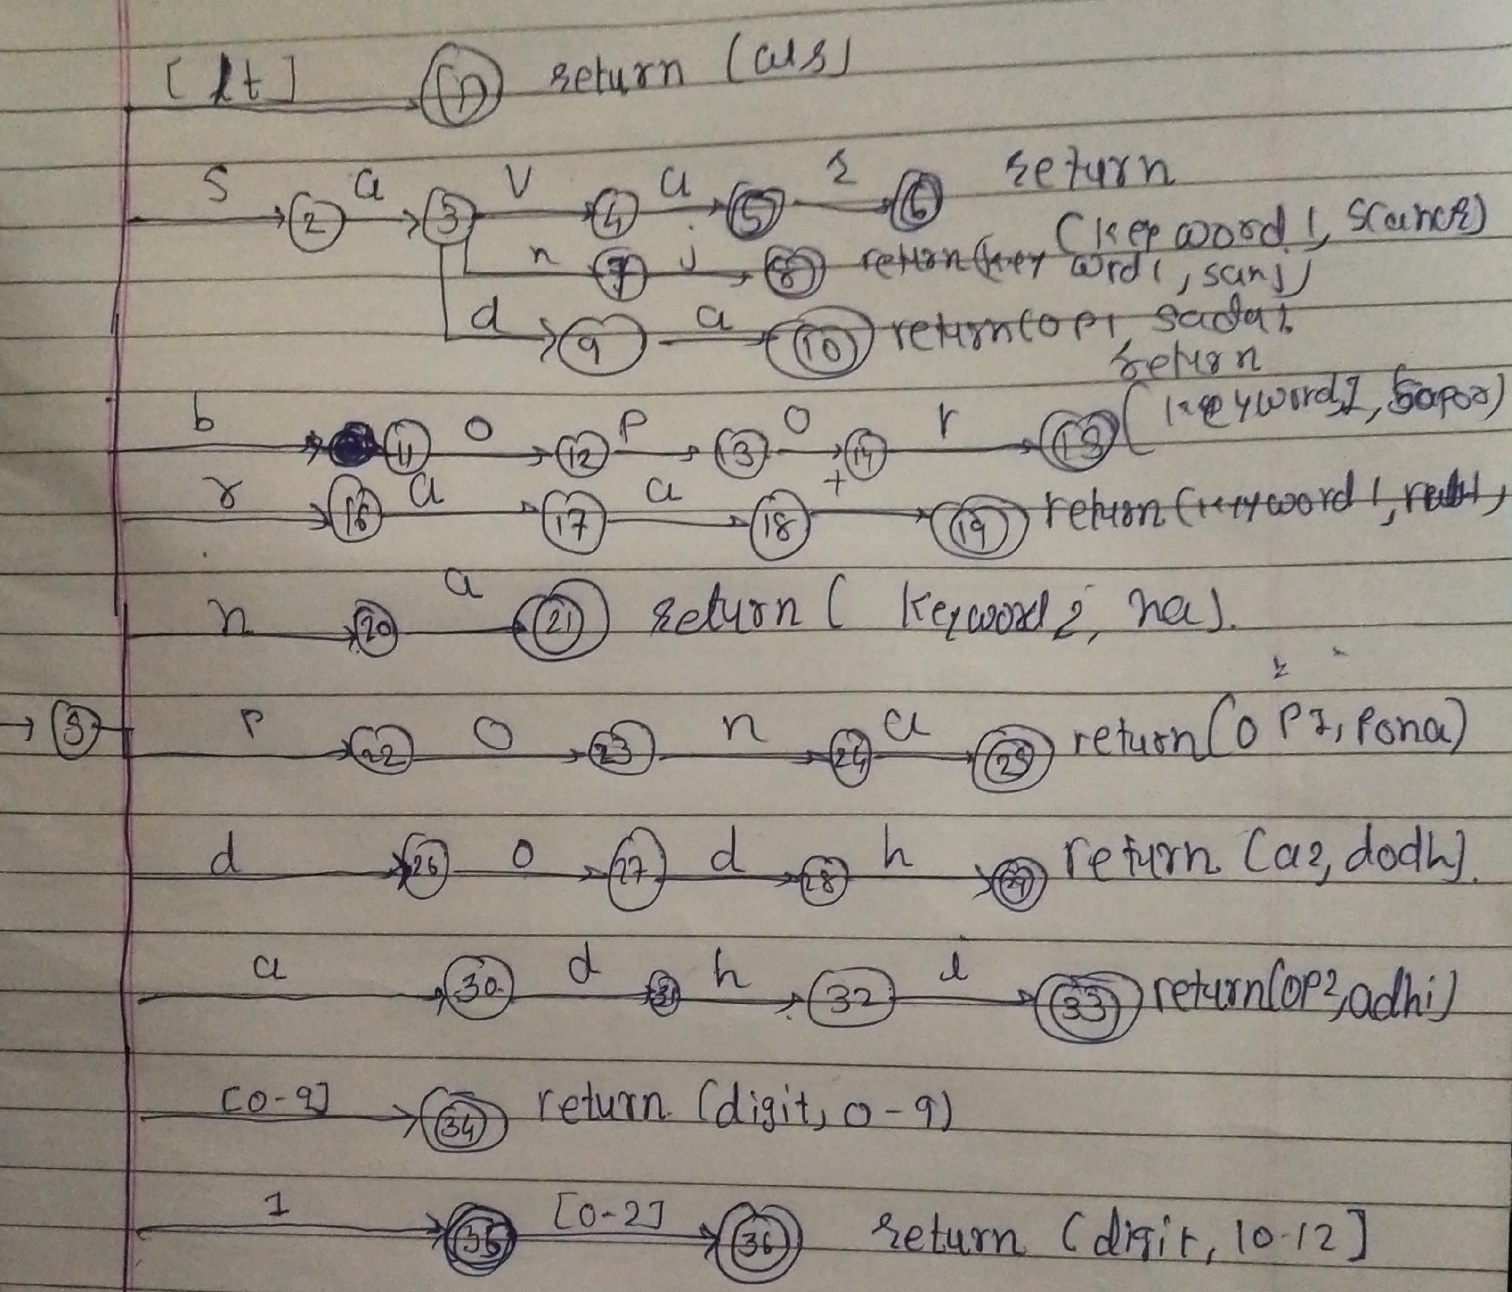 [lt] 1 return (ws)
S 2 a 3 V 4 a 5 r 6 return
(keyword 1, savar)
n 7 j 8 return (key word 1, sanj)
d 9 a 10 return (OP1, sada)
return
b 11 o 12 p 13 o 14 r 15 (keyword 1, bapor)
r 16 a 17 a 18 t 19 return (keyword 1, raat)
n 20 a 21 return ( keyword 2, na).
→ S P 22 O 23 n 24 a 25 return (OP1, Pona)
d 26 o 27 d 28 h 29 return (a2, dodh).
a 30 d 31 h 32 i 33 return (OP2, adhi)
[0-9] 34 return (digit, 0-9)
1 35 [0-2] 36 return (digit, 10-12]